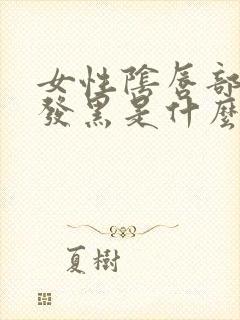 女性陰唇部
發黑是什麼
夏樹